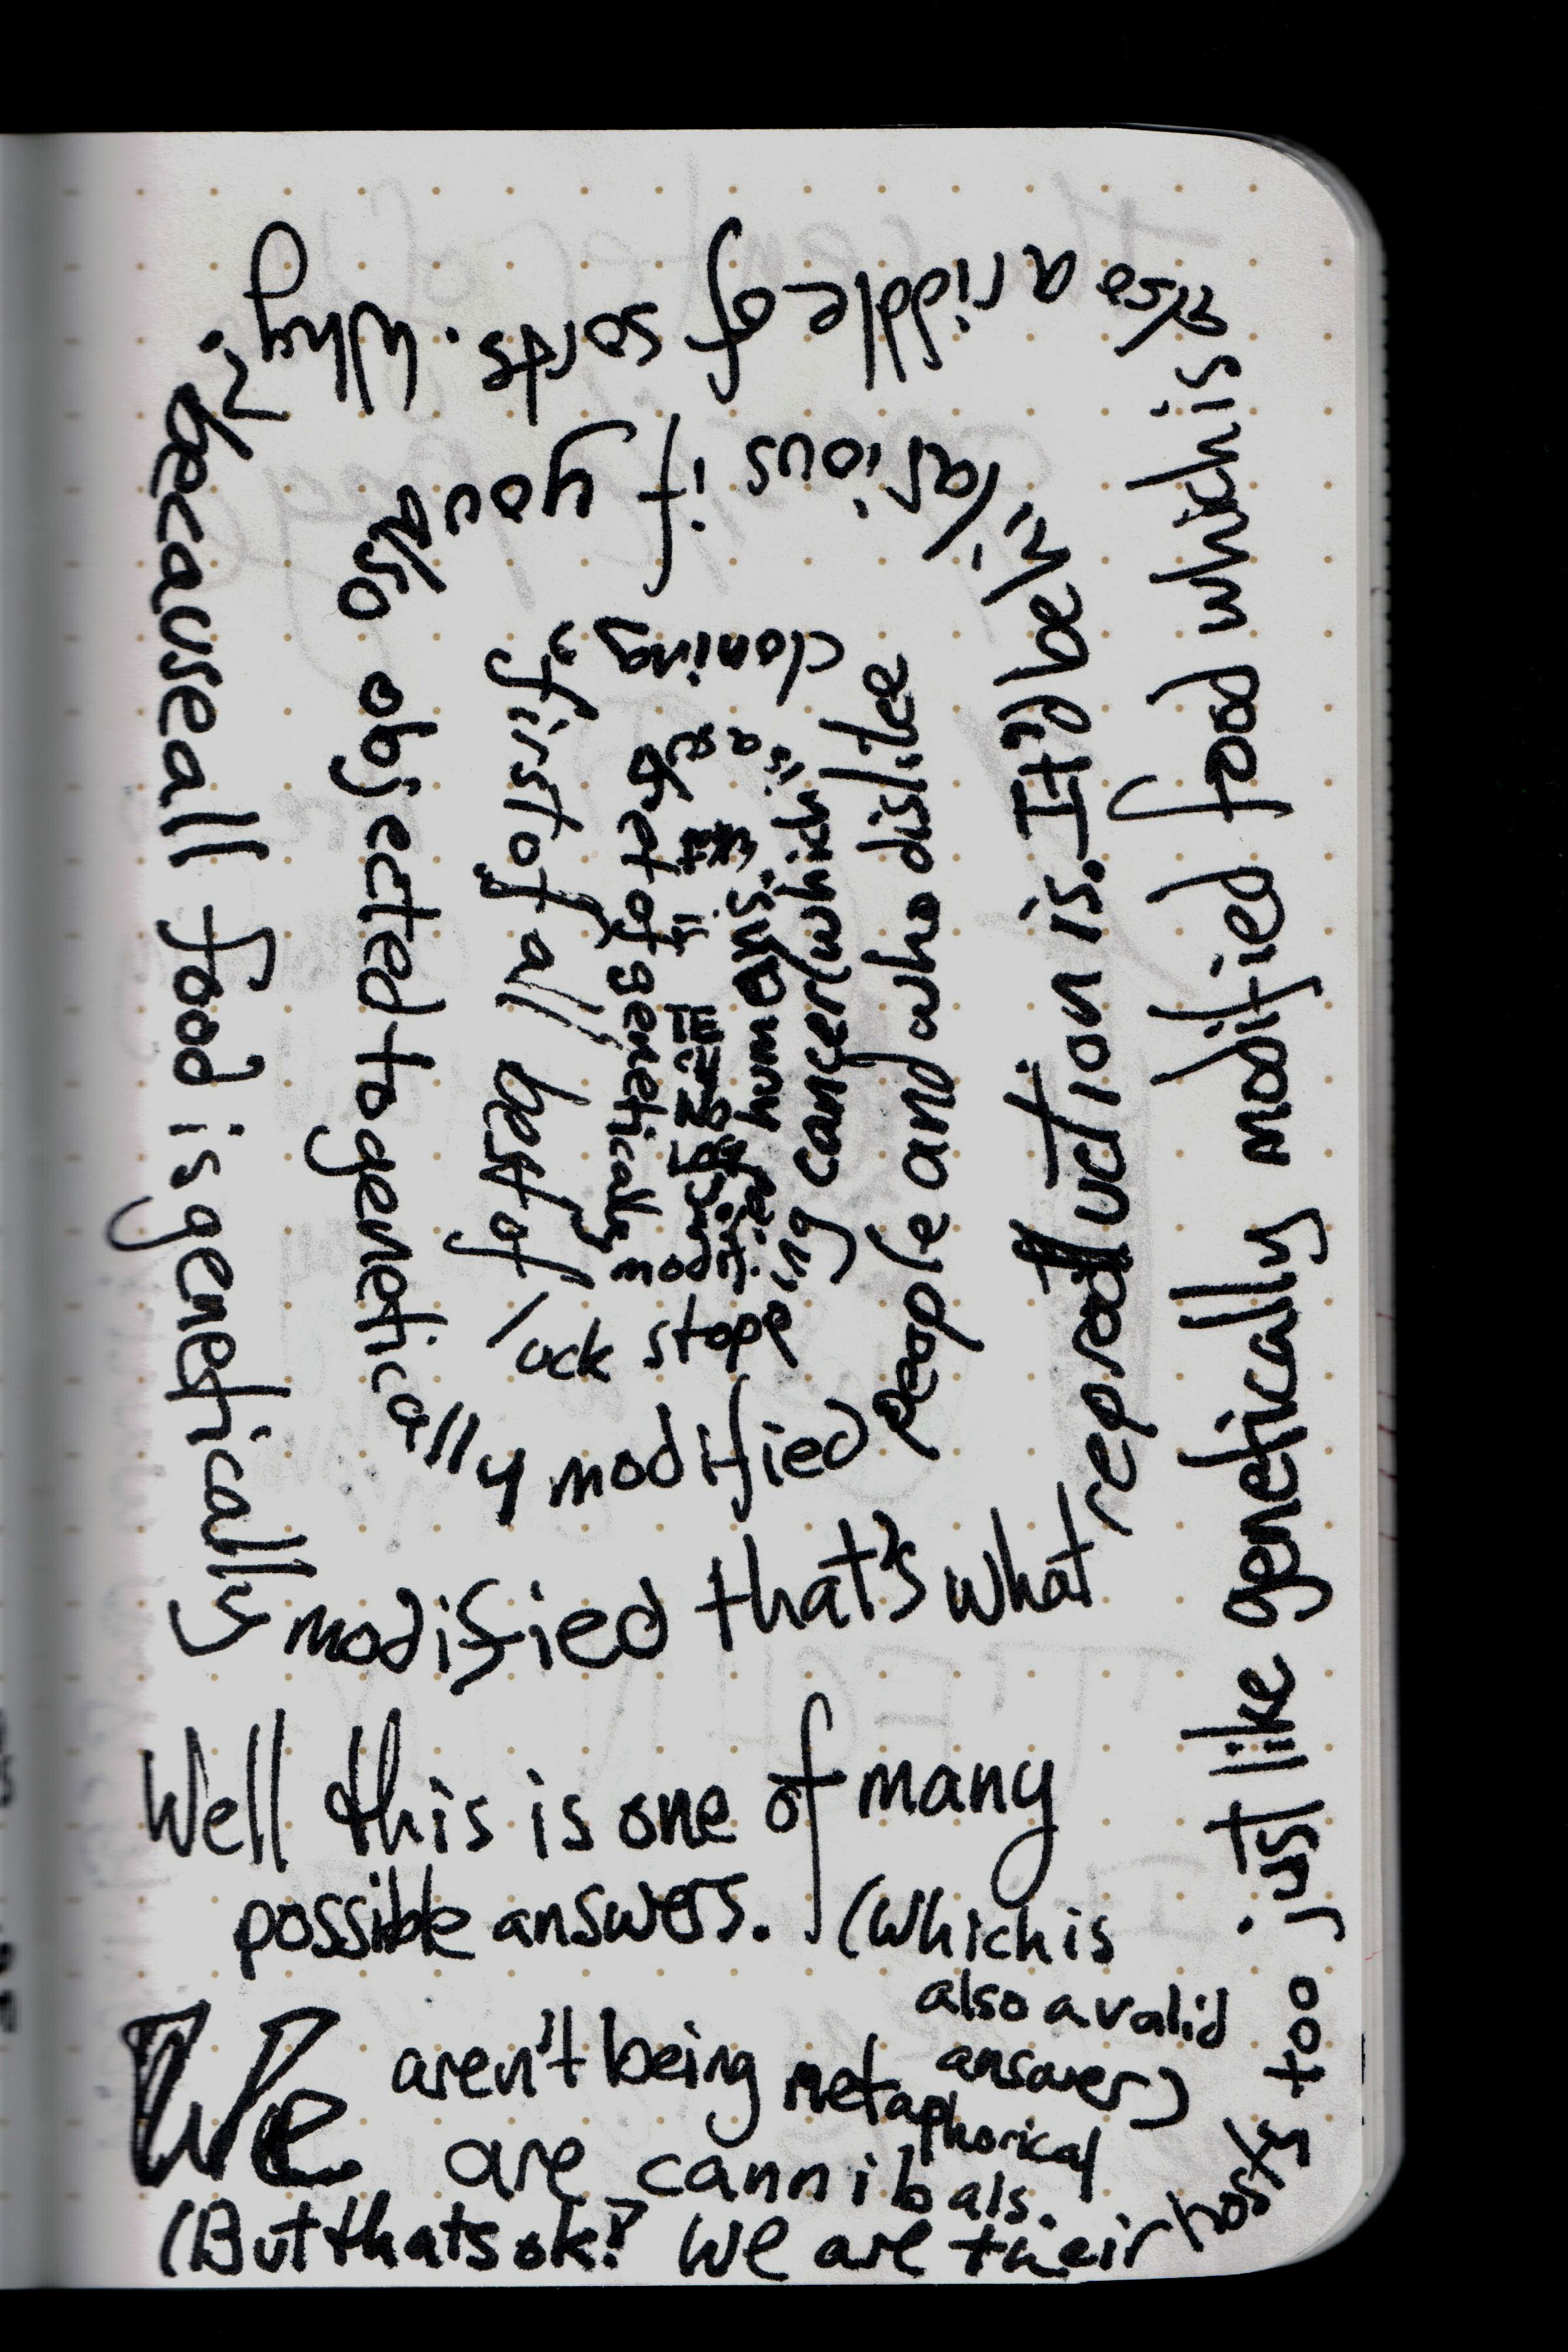 Well this is one of many
possible answers. (Which is
also a valid
answer)
We aren't being metaphorical
are cannibals.
(But thats ok! We are their
hosts too
just like genetically modified food which is
also a riddle of sorts. Why?
because all food is genetically
modified that's what
reproduction is. It'd be
hilarious if you
also objected to genetically
modified
people and who dislike
cloning,
first of all, best of
luck stopping
cancer (which is
a set of genetically
modified
human